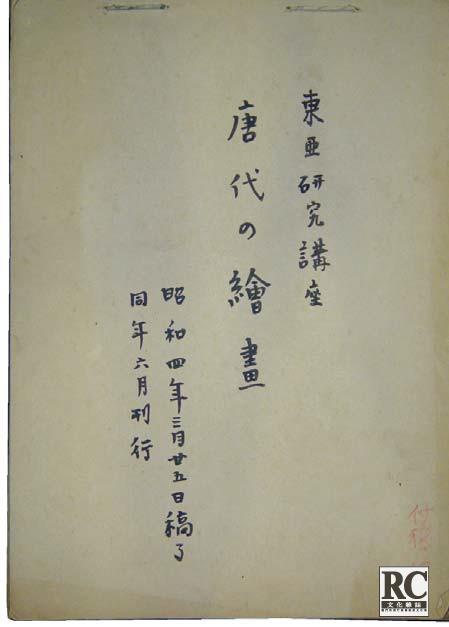 東亜研究講座
唐代の繪畫
昭和四年三月廿五日稿了
同年六月刊行
RC
文化雜誌